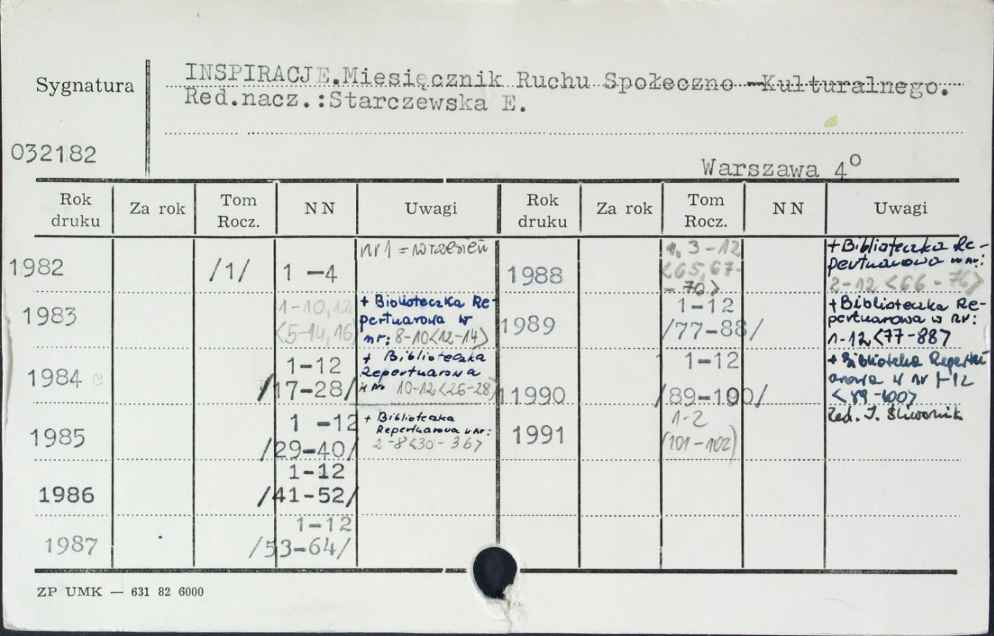 Sygnatura
INSPIRACJE.Miesięcznik Ruchu Społeczno-Kulturalnego.
Red.nacz.:Starczewska E.
032182
Warszawa 4°
Rok druku Za rok Tom Rocz. NN Uwagi Rok druku Za rok Tom Rocz. NN Uwagi
1982 /1/ 1-4 nr 1 = wrzesień
1983 1-10,12 <5-14,16> + Biblioteczka Repertuarowa w nr: 8-10<12-14>
1984 1-12 /17-28/ + Biblioteczka Repertuarowa w nr 10-12<26-28>
1985 1-12 /29-40/ + Biblioteczka Repertuarowa w nr: 2-8<30-36>
1986 1-12 /41-52/
1987 1-12 /53-64/
1988 1, 3-12 <65,67-76> + Biblioteczka Repertuarowa w nr: 2-12 <66-76>
1989 1-12 /77-88/ + Biblioteczka Repertuarowa w nr: 1-12<77-88>
1990 1-12 /89-100/ + Biblioteczka Repertuarowa w nr 1-12 <89-100>
Red. J. Śliwonik
1991 1-2 (101-102)
ZP UMK — 631 82 6000